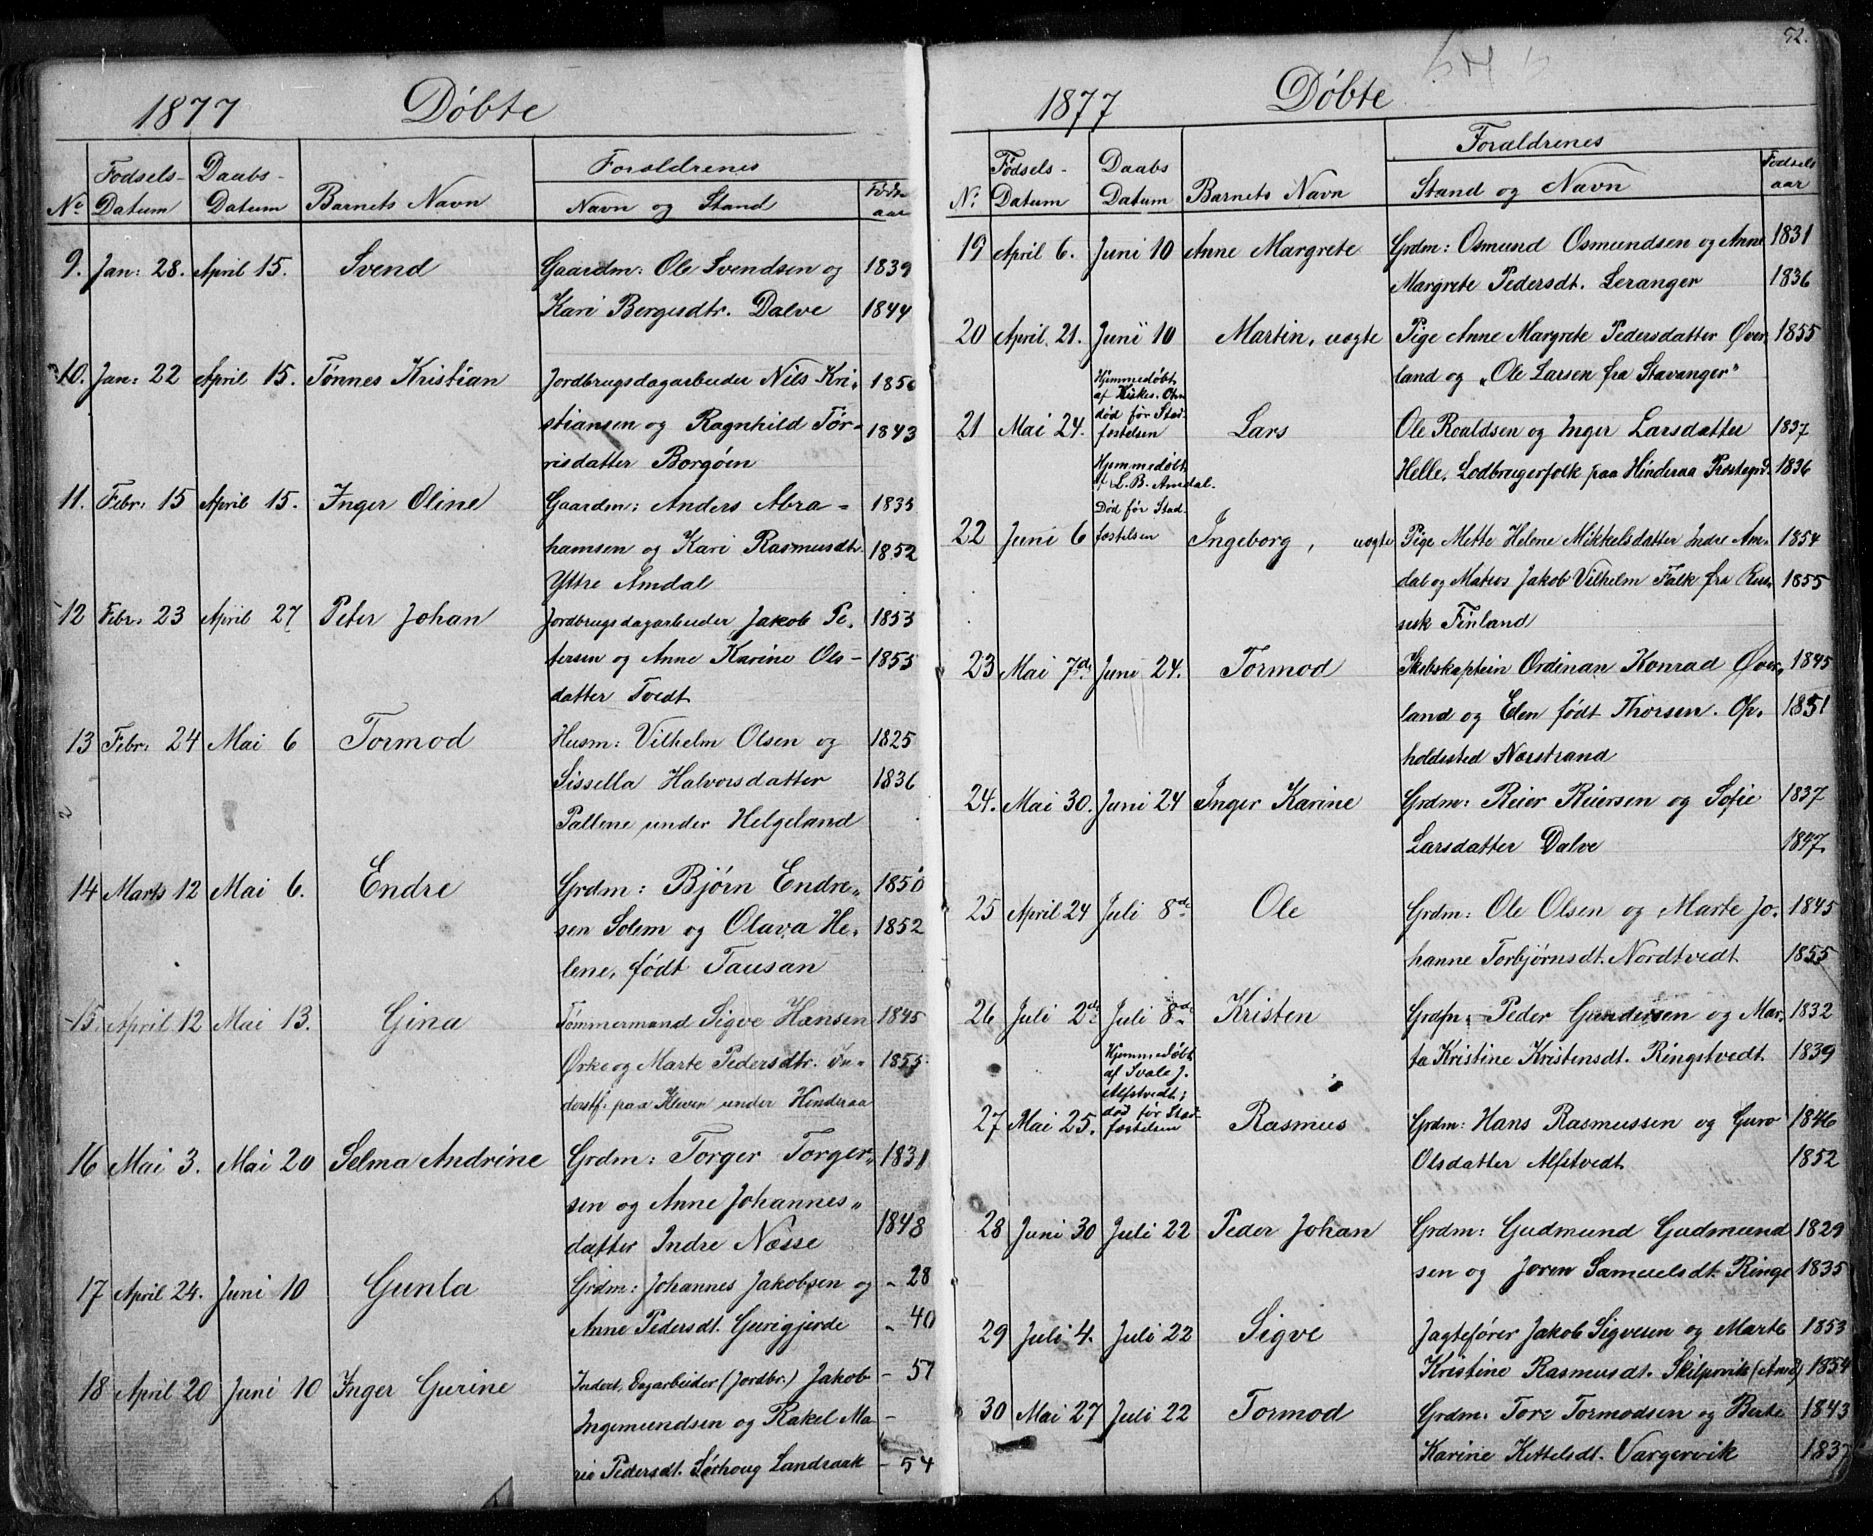 1877 Döbte
Födsels- Daabs- Foraldrenes Föds.
No. Datum Datum Barnets Navn Navn og Stand aar
9. Jan: 28. April 15. Svend Gaardm: Ole Svendsen og 1839
Kari Bergesdtr. Dalve 1844
10. Jan: 22 April 15. Tönnes Kristian Jordbrugsdagarbeider Nils Kri- 1850
stiansen og Ragnhild Tör- 1843
risdatter Borgöen
11. Febr: 15 April 15. Inger Oline Gaardm: Anders Abra- 1835
hamsen og Kari Rasmusdt. 1852
Yttre Amdal
12 Febr. 23 April 27 Peter Johan Jordbrugsdagarbeider Jakob Pe- 1853
tersen og Anne Karine Ols- 1855
datter Tvedt
13 Febr: 24 Mai 6 Tormod Husm: Vilhelm Olsen og 1825
Sissella Halvorsdatter 1836
Pallene under Helgeland
14 Marts 12 Mai 6. Endre Grdm: Björn Endre- 1850
sen Solem og Olava He- 1852
lene, födt Tausan
15. April 12 Mai 13. Gina Tömmermand Sigve Hansen 1845
Örke og Marte Pedersdtr. In- 1855
derstf. paa Kleven under Hinderaa
16 Mai 3. Mai 20 Selma Andrine Grdm: Torger Torger- 1831
sen og Anne Johannes-
datter Indre Næsse 1848
17 April 24. Juni 10 Gunla Grdm: Johannes Jakobsen og - 28
Anne Pedersdt. Gurigjerde - 40
18 April 20 Juni 10 Inger Gurine Inderst, Dagarbeider (Jordbr.) Jakob - 51
Ingemundsen og Rakel Ma- -
rie Pedersdt. Sörhoug Landraak - 54
52.
1877 Döbte
Födsels- Daabs Foraldrenes Fødsels
N: Datum Datum Barnets Navn Stand og Navn aar
19 April 6. Juni 10 Anne Margrete Grdm: Osmund Osmundsen og Anne 1831
Margrete Pedersdt. Leranger 1836
20 April 21. Juni 10 Martin, uægte Pige Anne Margrete Pedersdatter Över- 1855
land og „Ole Larsen fra Stavanger"
Hjemmedöbt
af Kirkes.
død før Stad-
21 Mai 24. fæstelsen Lars Ole Roaldsen og Inger Larsdatter 1837
Helle, Lodbrugerfolk paa Hinderaa Prestegrd. 1836
Hjemmedöbt
af L. B. Amdal.
Död för Stad-
22 Juni 6 fæstelsen Ingeborg, uægte Pige Mette Helene Mikkelsdatter Indre Am- 1854
dal og Matros Jakob Vilhelm Falk fra Rus- 1855
sisk Finland
23 Mai 7de Juni 24. Tormod Skibskaptein Ordinan Konrad Över- 1845
land og Elen födt Thorsen. Op- 1851
holdssted Nærstrand
24. Mai 30. Juni 24 Inger Karine Grdm: Reier Reiersen og Sofie 1837
Larsdatter Dalve 1847.
25 April 24 Juli 8de Ole Grdm: Ole Olsen og Marte Jo- 1845
hanne Torbjörnsdt. Nordtvedt 1855
26 Juli 2de Juli 8de Kristen Grdm: Peder Gundersen og Mar- 1832
ta Kristine Kristensdt. Ringstvedt 1839
Hjemmedöbt
af Svale J.
Alfstvedt;
död før Stad-
27 Mai 25. fæstelsen Rasmus Grdm: Hans Rasmussen og Guro 1846
Olsdatter Alfstvedt 1852
28 Juni 30 Juli 22 Peder Johan Grdm: Gudmund Gudmund 1829
sen og Joren Samuelsdt. Ringe 1835
29 Juli 4. Juli 22 Sigve Jagtefører Jakob Sigvesen og Marte 1853
Kristine Rasmusdt. Skilpevik 1854
30 Mai 27 Juli 22 Tormod Grdm: Tore Tormodsen og Berte 1843
Karine Kettelsdt. Vargervik 1837